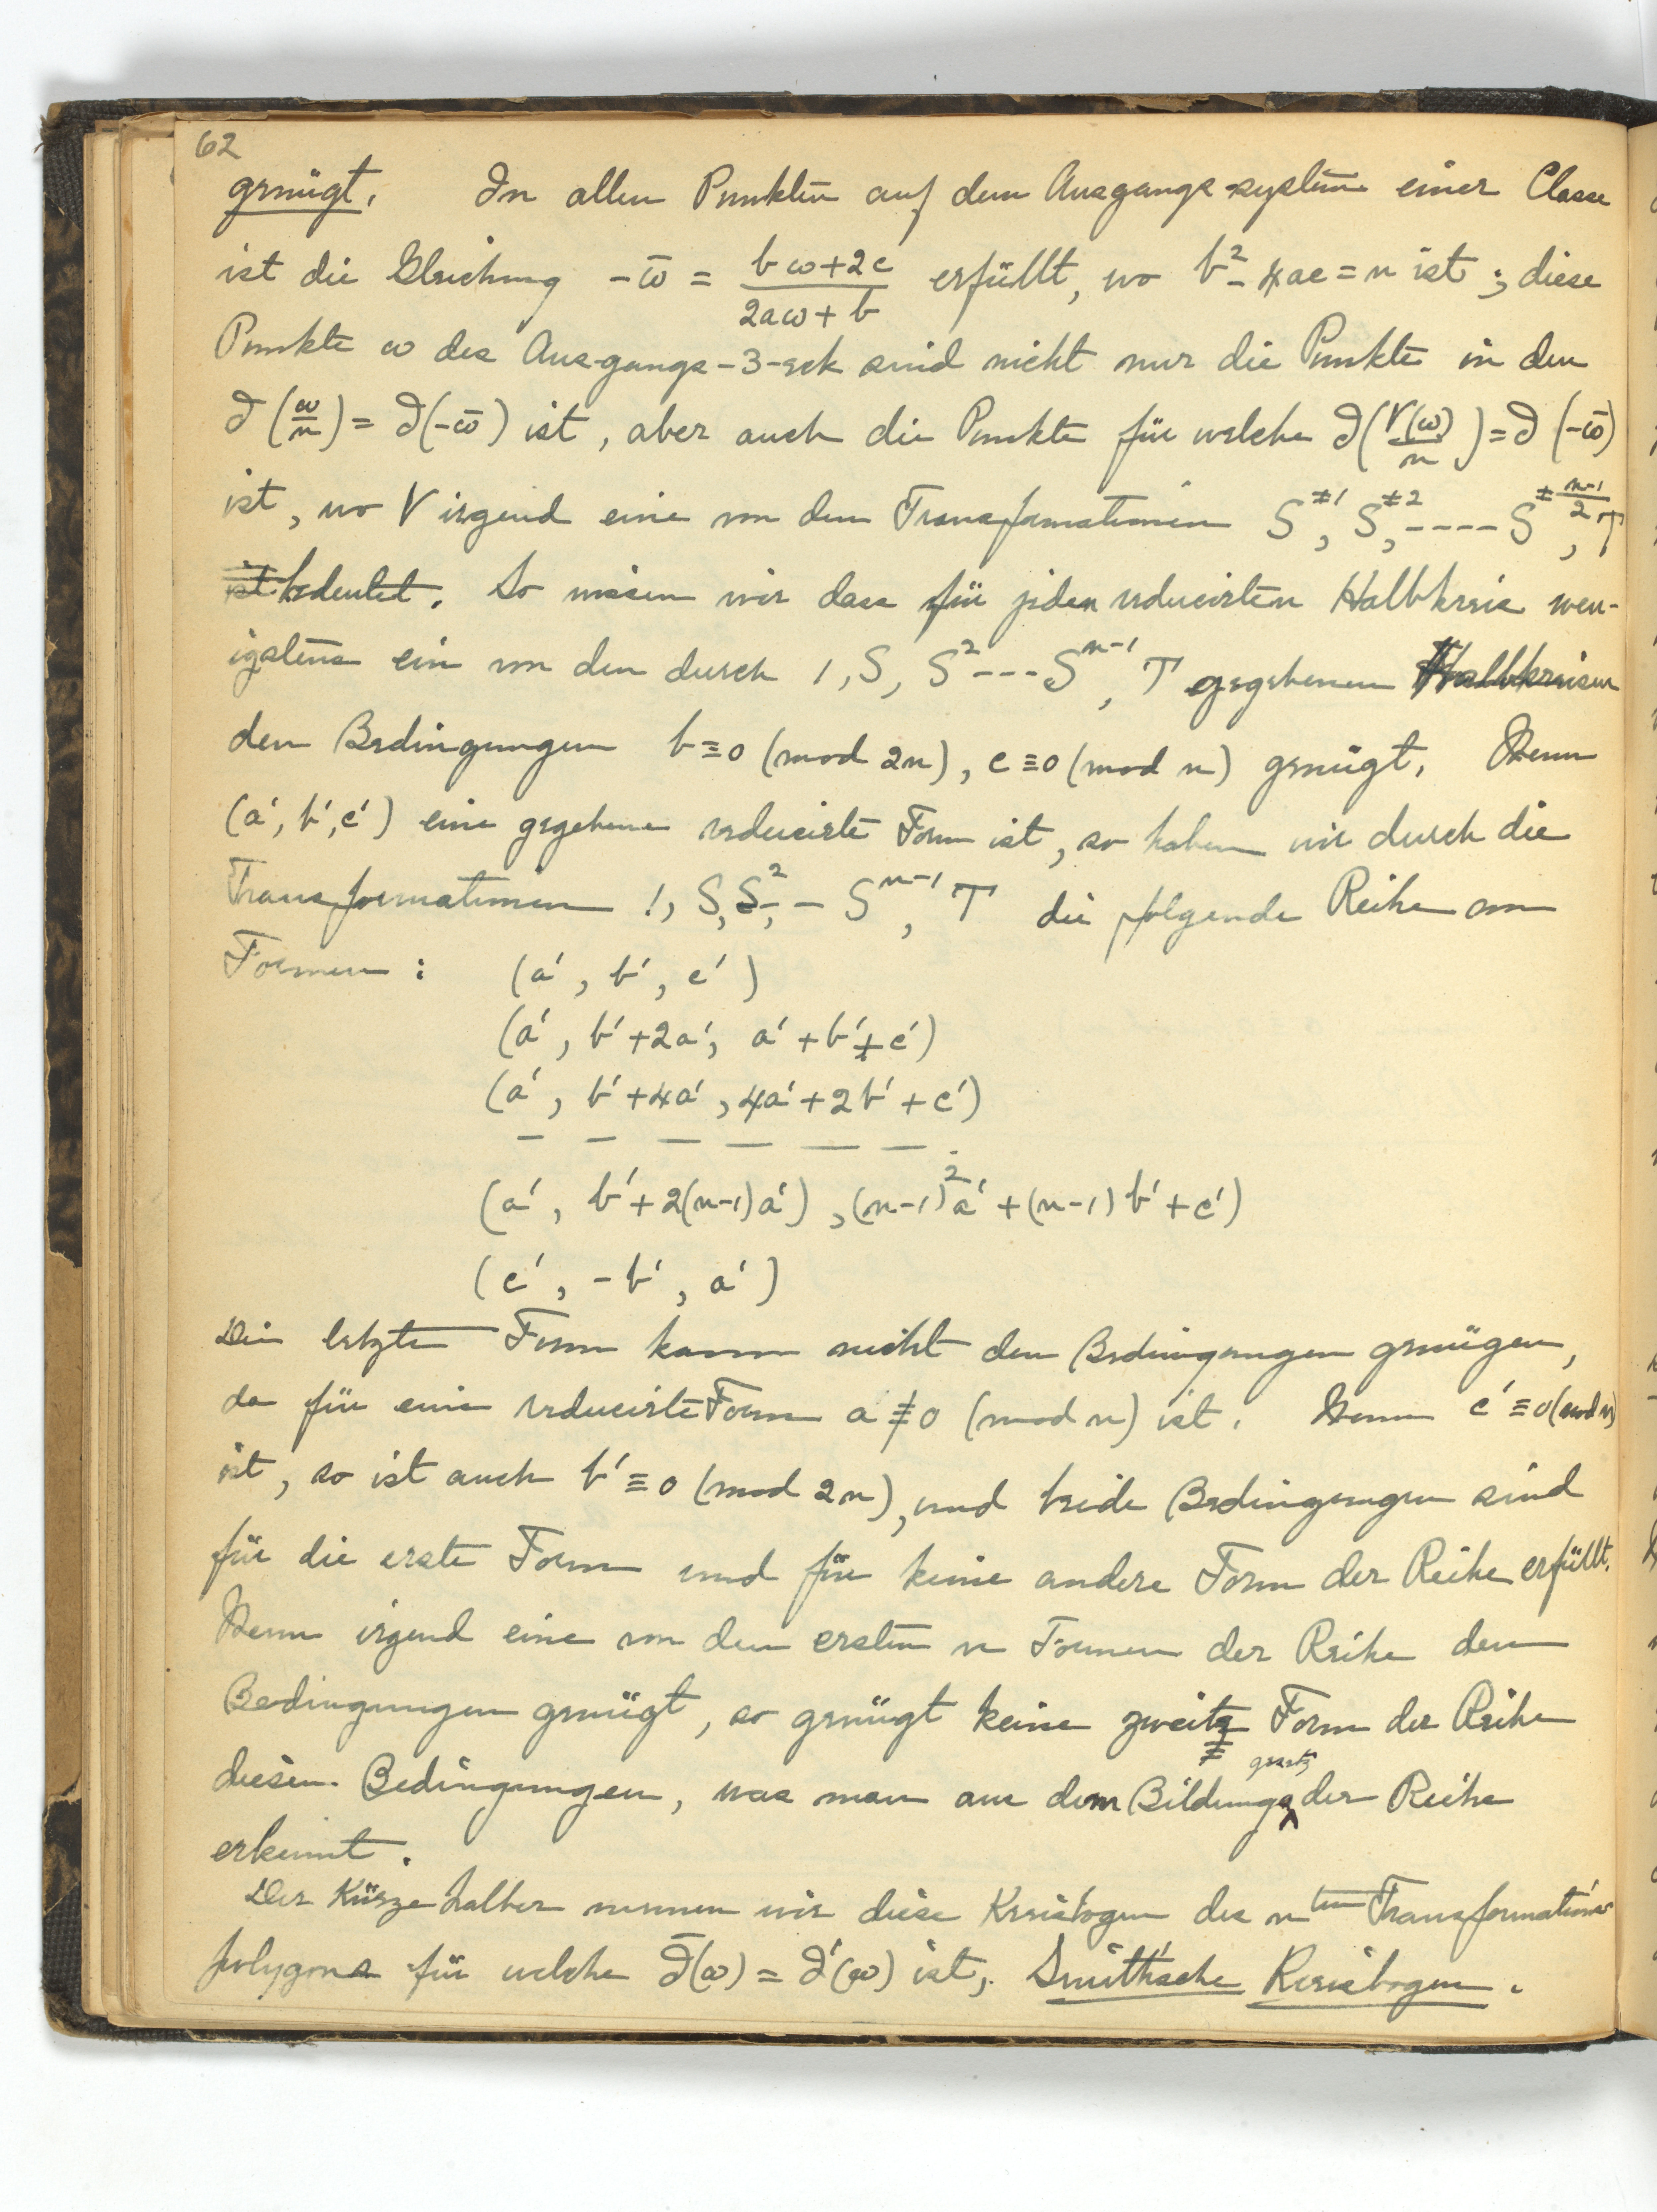 62
genügt. In allen Punkten auf dem Ausgangs-system einer Classe
ist die Gleichung -ω̄ = (bω+2c)/(2aω+b) erfüllt, wo b²-4ac=n ist; diese
Punkte ω des Ausgangs-3-eck sind nicht nur die Punkte in den
∂(ω/n) = ∂(-ω̄) ist, aber auch die Punkte für welche ∂(V(ω)/n) = ∂(-ω̄)
ist, wo V irgend eine von den Transformationen S^±1, S^±2, ---- S^±(n-1)/2, T
ist bedeutet. So wissen wir dass für jeden reducirten Halbkreis wen-
igstens ein von den durch 1, S, S² --- S^n-1, T gegebenen Halbkreisen
den Bedingungen b≡0 (mod 2n), c≡0 (mod n) genügt. Wenn
(a', b', c') eine gegebene reducirte Form ist, so haben wir durch die
Transformationen 1, S, S², -- S^n-1, T die folgende Reihe von
Formen : (a', b', c')
(a', b'+2a', a'+b'+c')
(a', b'+4a', 4a'+2b'+c')
— — — — — —
(a', b'+2(n-1)a'), (n-1)²a'+(n-1)b'+c')
(c', -b', a')
Die letzte Form kann nicht den Bedingungen genügen,
da für eine reducirte Form a≢0 (mod n) ist. Wenn c'≡0 (mod n)
ist, so ist auch b'≡0 (mod 2n), und beide Bedingungen sind
für die erste Form und für keine andere Form der Reihe erfüllt.
Wenn irgend eine von den ersten n Formen der Reihe den
Bedingungen genügt, so genügt keine zweite Form der Reihe
gesetz
diesen Bedingungen, was man aus dem Bildungs der Reihe
erkennt.
Der Kürze halber nennen wir diese Kreisbogen des n^ten Transformations
polygons für welche ∂̄(ω) = ∂'(ω) ist, Smith'sche Kreisbogen.